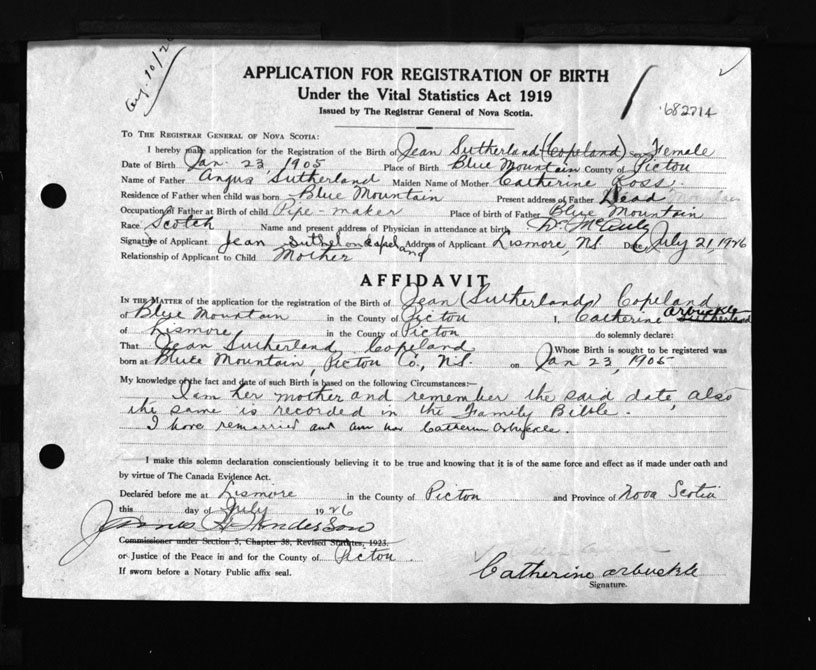 Aug. 10/26
682714
APPLICATION FOR REGISTRATION OF BIRTH
Under the Vital Statistics Act 1919
Issued by The Registrar General of Nova Scotia.
TO THE REGISTRAR GENERAL OF NOVA SCOTIA:
I hereby make application for the Registration of the Birth of Jean Sutherland (Copeland) Female
Date of Birth Jan. 23, 1905 Place of Birth Blue Mountain County of Pictou
Name of Father Angus Sutherland Maiden Name of Mother Catherine Ross
Residence of Father when child was born Blue Mountain Present address of Father Dead
Occupation of Father at Birth of child Pipe-maker Place of birth of Father Blue Mountain
Race Scotch Name and present address of Physician in attendance at birth Dr.
Signature of Applicant Jean Copeland Address of Applicant Lismore, N.S. Date July 21, 1926
Relationship of Applicant to Child Mother
AFFIDAVIT
IN THE MATTER of the application for the registration of the Birth of Jean (Sutherland) Copeland
of Blue Mountain in the County of Pictou I, Catherine Arbuckle Sutherland
of Lismore in the County of Pictou do solemnly declare:
That Jean Sutherland Copeland Whose Birth is sought to be registered was
born at Blue Mountain, Pictou Co., N.S. on Jan 23, 1905
My knowledge of the fact and date of such Birth is based on the following Circumstances:—
I am her mother and remember the said date, also
the same is recorded in the Family Bible.
I have remarried and am now Catherin Arbuckle.
I make this solemn declaration conscientiously believing it to be true and knowing that it is of the same force and effect as if made under oath and
by virtue of The Canada Evidence Act.
Declared before me at Lismore in the County of Pictou and Province of Nova Scotia
this day of July 1926
James Henderson
Commissioner under Section 5, Chapter 38, Revised Statutes, 1923.
or Justice of the Peace in and for the County of Pictou.
If sworn before a Notary Public affix seal.
Catherine Arbuckle
Signature.